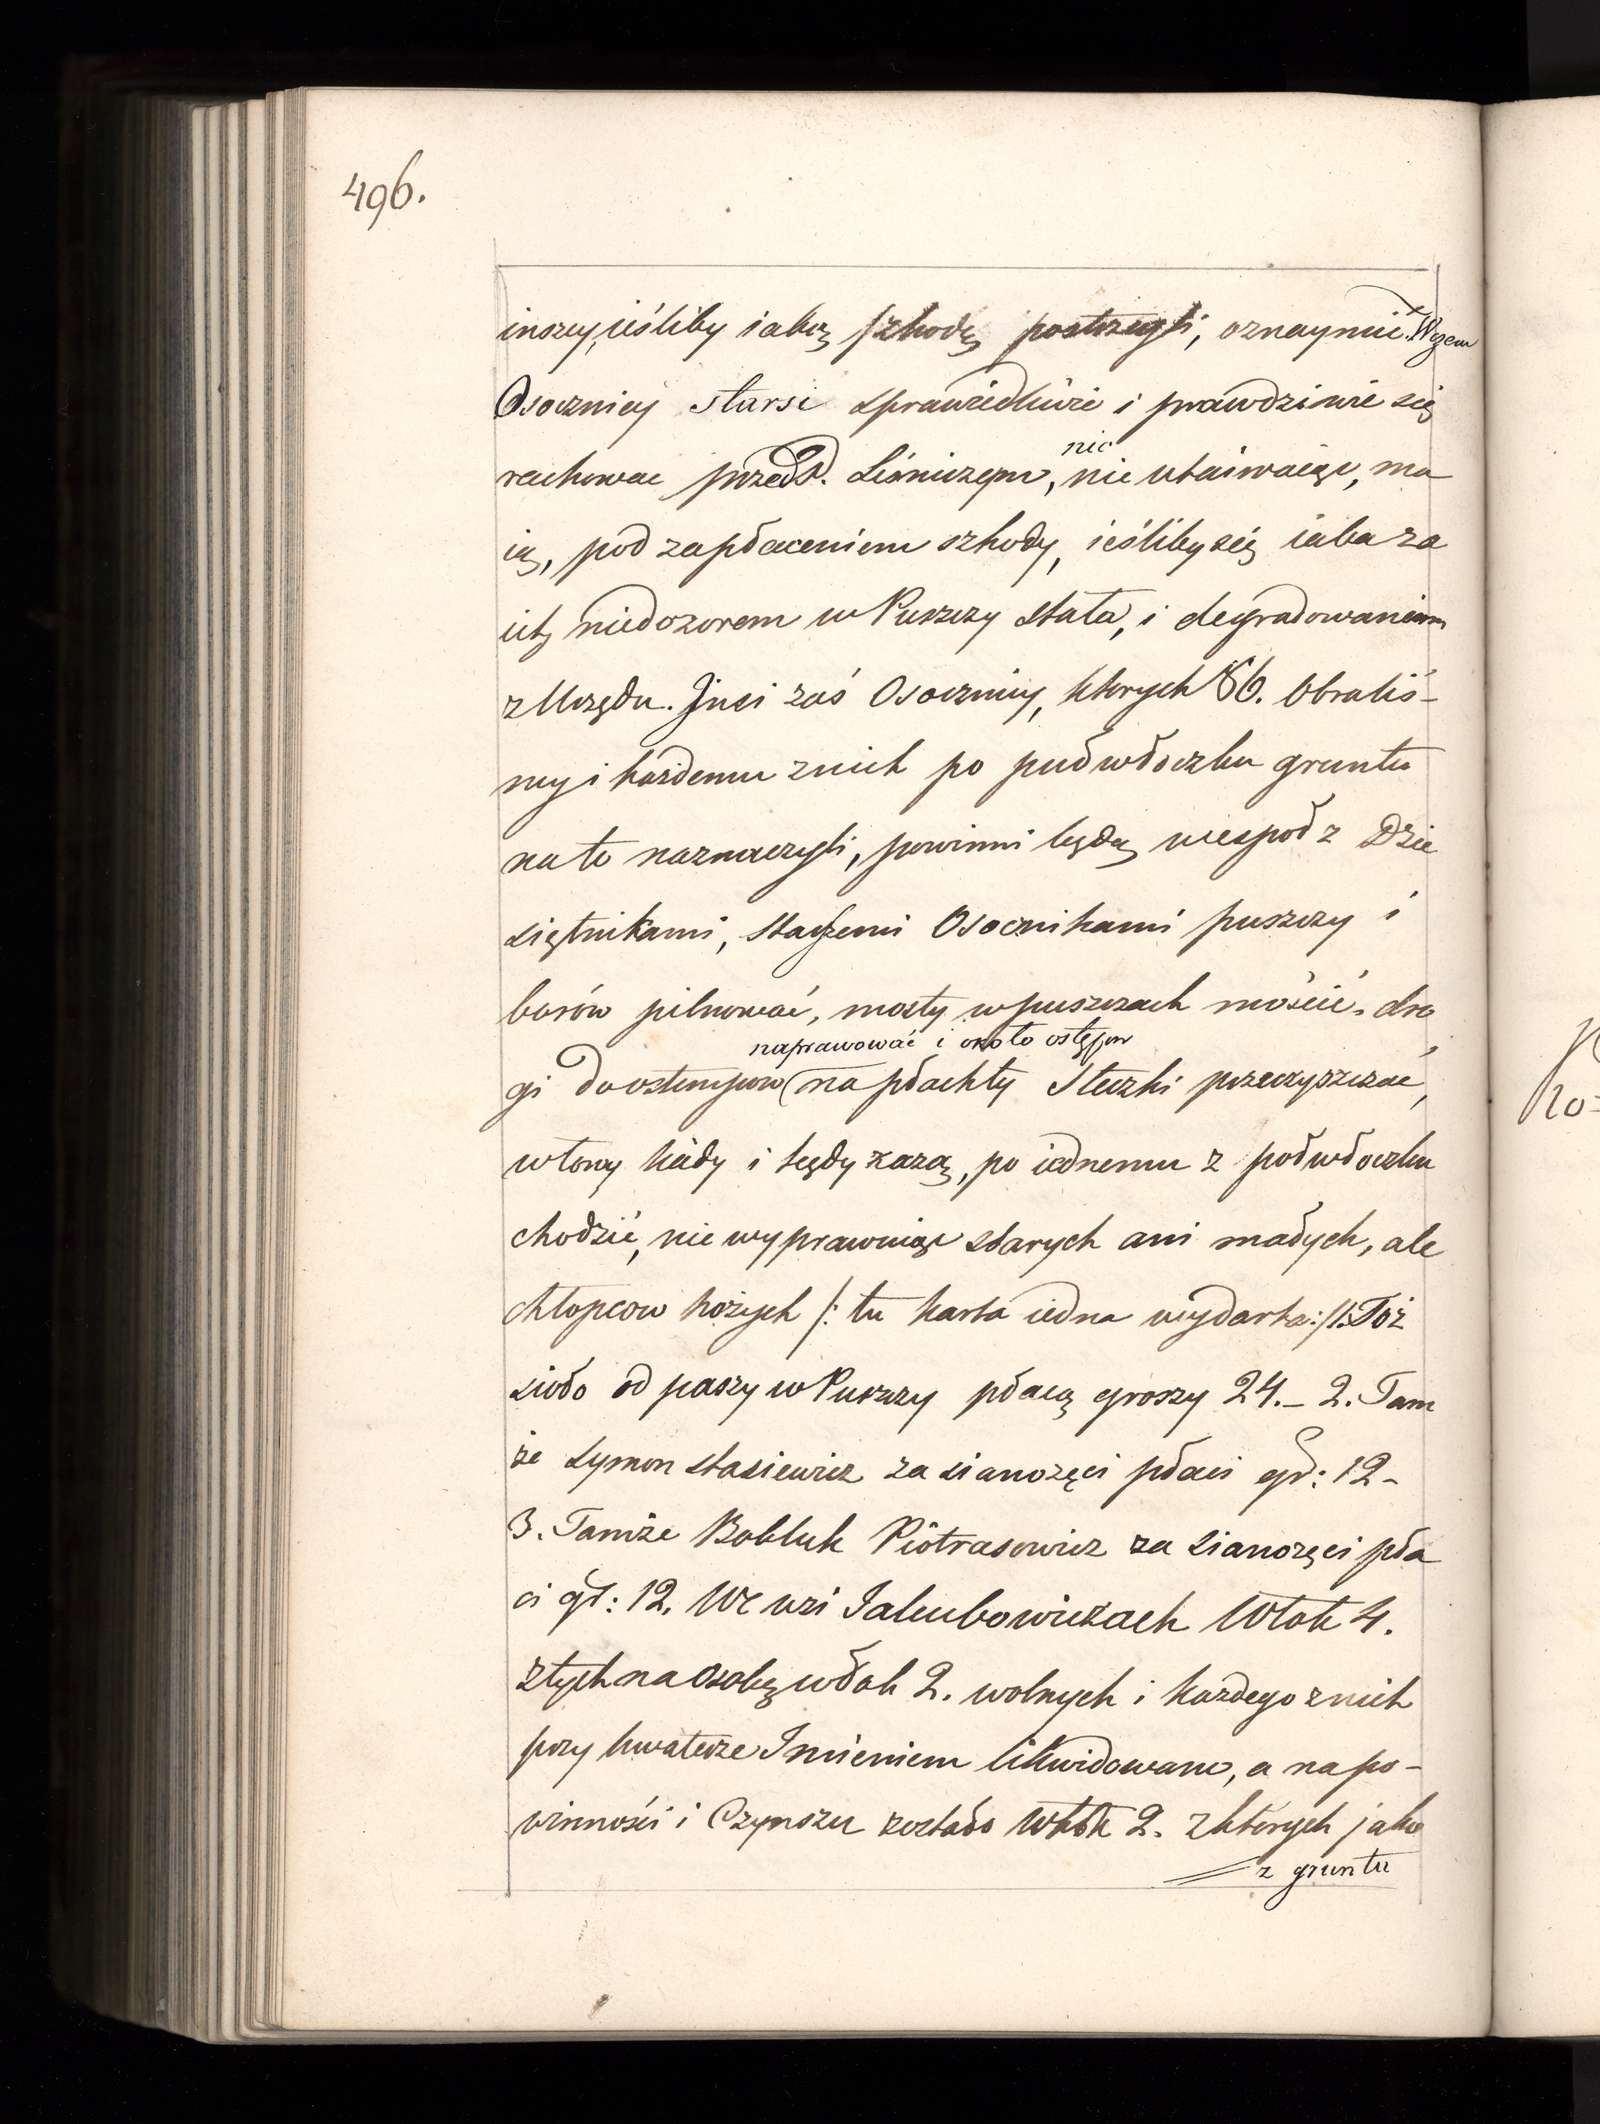 496.
inszey, ieśliby iaką szkodę postrzegli, oznaymić. Wczem
Osocznicy starsi sprawiedliwie i prawdziwie się
rachowac przed P. Leśniczym, nic nie utaiwaiąc, ma
ią, pod zapłaceniem szkody, ieśliby się iaka za
ich niedozorem w Puszczy stała, i degradowaniem
z Urzędu. Jnsi zaś Osocznicy, ktorych 86. Obraliś-
my i każdemu znich po puł włoczku gruntu
na to naznaczyli, powinni będą wespoł z Dzie
siętnikami, starszemi Osocznikami puszczy i
borów pilnować, mosty wpuszczach mościć, dro
naprawować i około ostępow
gi do ostempow na płachty Steczki przeczyszczać,
w łowy kiedy i kędy każą, po iednemu z połwłoczku
chodzić, nie wyprawuiąc starych ani małych, ale
chłopcow hożych /: tu karta iedna wydarta :/ 1. Toż
sioło od paszy w Puszczy płacą groszy 24. – 2. Tam
że Symon Stasiewicz za sianożęci płaci gr: 12 –
3. Tamże Bobluk Piotrasowicz za sianożęci pła
ci gr: 12. We wsi Jakubowiczach Włok 4.
ztych na Osokę włok 2. wolnych i każdego znich
przy kwaterze Jmieniem likwidowano, a na po-
winności i Czynszu zostało Włok 2. zktorych jako
z gruntu